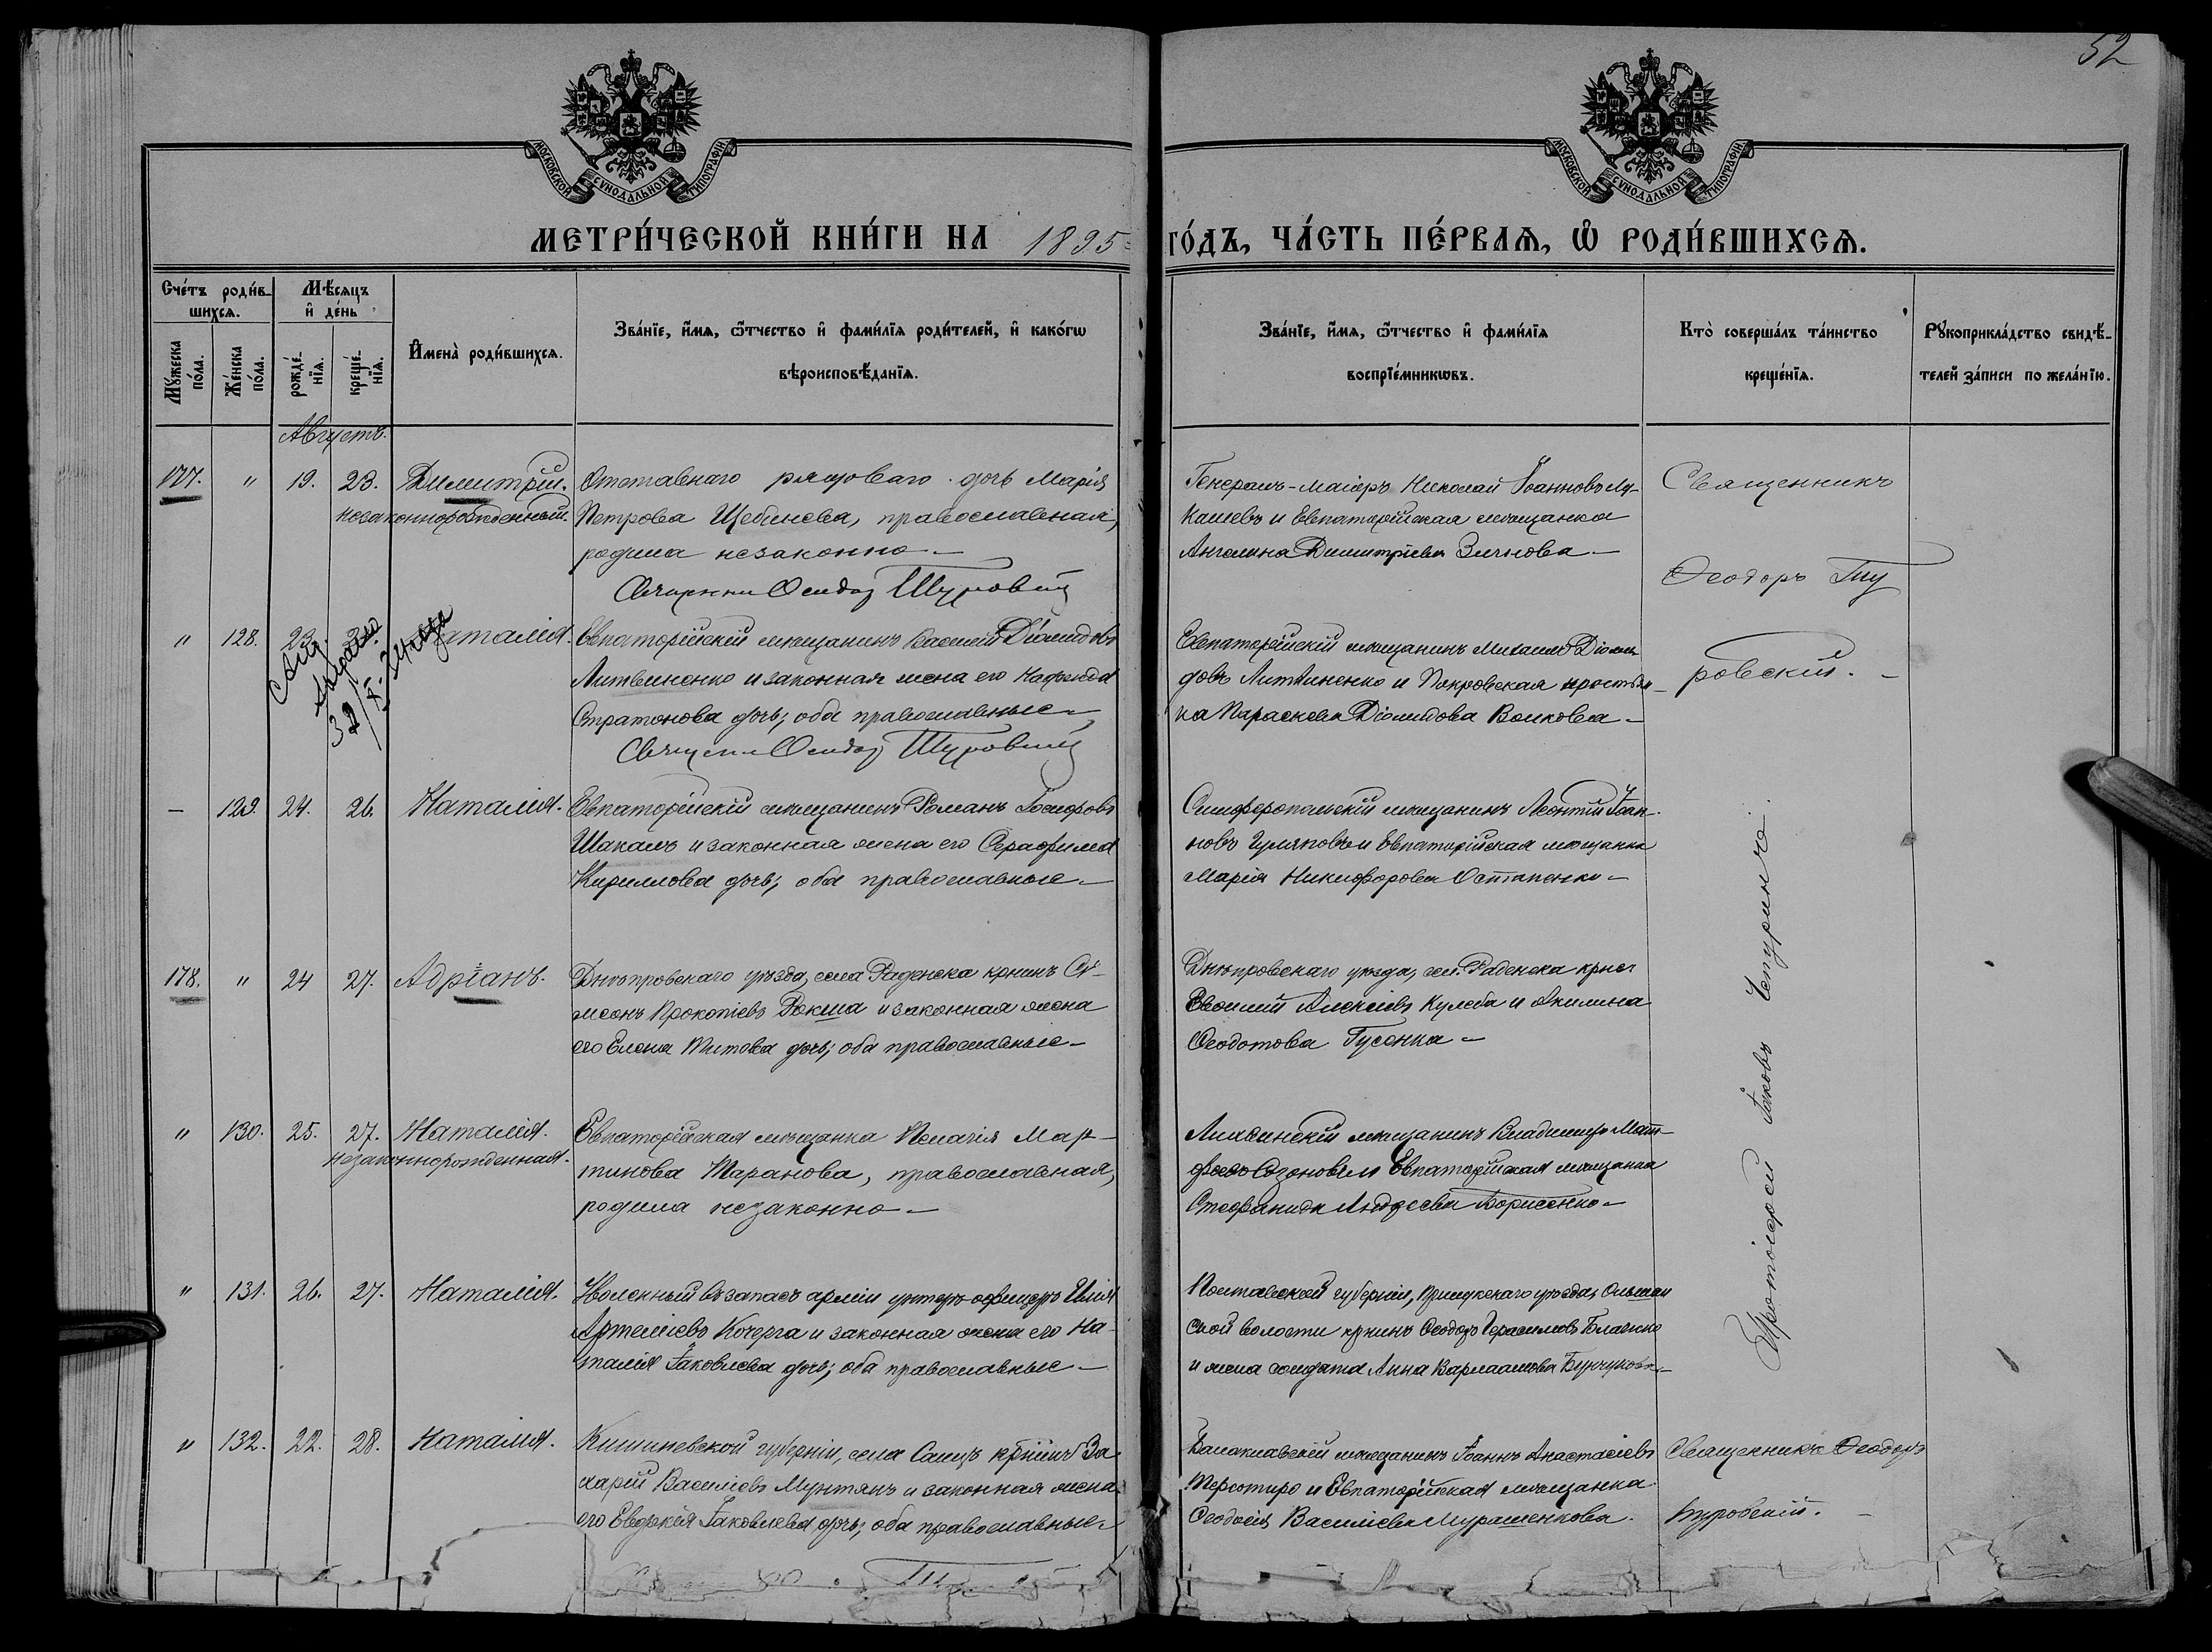 52
МОСКОВСКОЙ СѴНОДАЛЬНОЙ ТИПОГРАФІИ
МОСКОВСКОЙ СѴНОДАЛЬНОЙ ТИПОГРАФІИ
МЕТРИ́ЧЕСКОЙ КНИ́ГИ НА 1895
ГО́ДЪ, ЧА́СТЬ ПЕ́РВАѦ, Ѡ҆ РОДИ́ВШИХСѦ.
Сче́тъ роди́в-
шихсѧ.
Мꙋ́жеска по́ла.
Же́нска по́ла.
Мѣ́сѧцъ
и҆ де́нь
рожде́-
нїѧ.
креще́-
нїѧ.
И҆мена̀ роди́вшихсѧ.
Зва́нїе, и҆́мѧ, ѻ҆́тчество и҆ фами́лїѧ роди́телей, и҆ како́гѡ
вѣроисповѣ́данїѧ.
Зва́нїе, и҆́мѧ, ѻ҆́тчество и҆ фами́лїѧ
воспрїе́мникѡвъ.
Кто̀ соверша́лъ та́инство
креще́нїѧ.
Рꙋкоприкла́дство свидѣ́-
телей за́писи по жела́нїю.
Августъ.
177. " 19. 23. Димитрій.
незаконнорожденный.
Отставнаго рядоваго дочь Марія
Петрова Щебинева, православная,
родила незаконно
Священни Феодор Туровскій
Генералъ-маіоръ Николай Іоанновъ Лу-
кашевъ и Евпаторійская мѣщанка
Ангелина Димитріева
Священникъ
Феодоръ Ту
ровскій.
" 128. 23. Наталія.
Евпаторійскій мѣщанинъ Василій Діомидовъ
Литвиненко и законная жена его Надежда
Стратонова дочь; оба православные
Священни Феодор Туровскій
Евпаторійскій мѣщанинъ Михаилъ Діоми-
довъ Литвиненко и Покровская крестьян-
ка Параскева Діомидова Волкова
129. 24. 26. Наталія.
Евпаторійскій мѣщанинъ Романъ Іосифовъ
Шакалъ и законная жена его Серафима
Кириллова дочь; оба православные
Симферопольскій мѣщанинъ Леонтій Іоан-
новъ и Евпаторійская мѣщанка
Марія Никифорова Остапенко
Протоіерей Іаковъ Чепуринъ.
178. " 24 27. Адріанъ.
Днѣпровскаго уѣзда, села Раденска крнинъ Сѵ-
меонъ Прокопіевъ Рокша и законная жена
его Елена Титова дочь; оба православные
Днѣпровскаго уѣзда, сел. Раденска крнъ
Алексіевъ Кулеба и Акилина
Феодотова Гусенка
" 130. 25. 27. Наталія.
незаконнорожденная.
Евпаторійская мѣщанка Пелагія Мар-
тинова Таранова, православная,
родила незаконно
мѣщанинъ Владиміръ Мат-
феевъ Созоновъ и Евпаторійская мѣщанка
Стефанида Андреева Борисенко
" 131. 26. 27. Наталія.
Уволенный въ запасъ арміи унтеръ-офицеръ Илія
Артеміевъ Кочерга и законная жена его На-
талія Іаковлева дочь; оба православные
Полтавской губерніи, Прилукскаго уѣзда, Ольшан
ской волости крнинъ Феодоръ Герасимовъ
и жена солдата Анна Варлаамова Бунчукова
" 132. 22. 28. Наталія.
Кишиневской губерніи, села крнинъ За-
харій Василіевъ Мунтянъ и законная жена
его Евдокія Іаковлева дочь; оба православные
Балаклавскій мѣщанинъ Іоаннъ Анастасіевъ
и Евпаторійская мѣщанка
Феодосія Василіева Мурашенкова.
Священникъ Феодоръ
Туровскій.